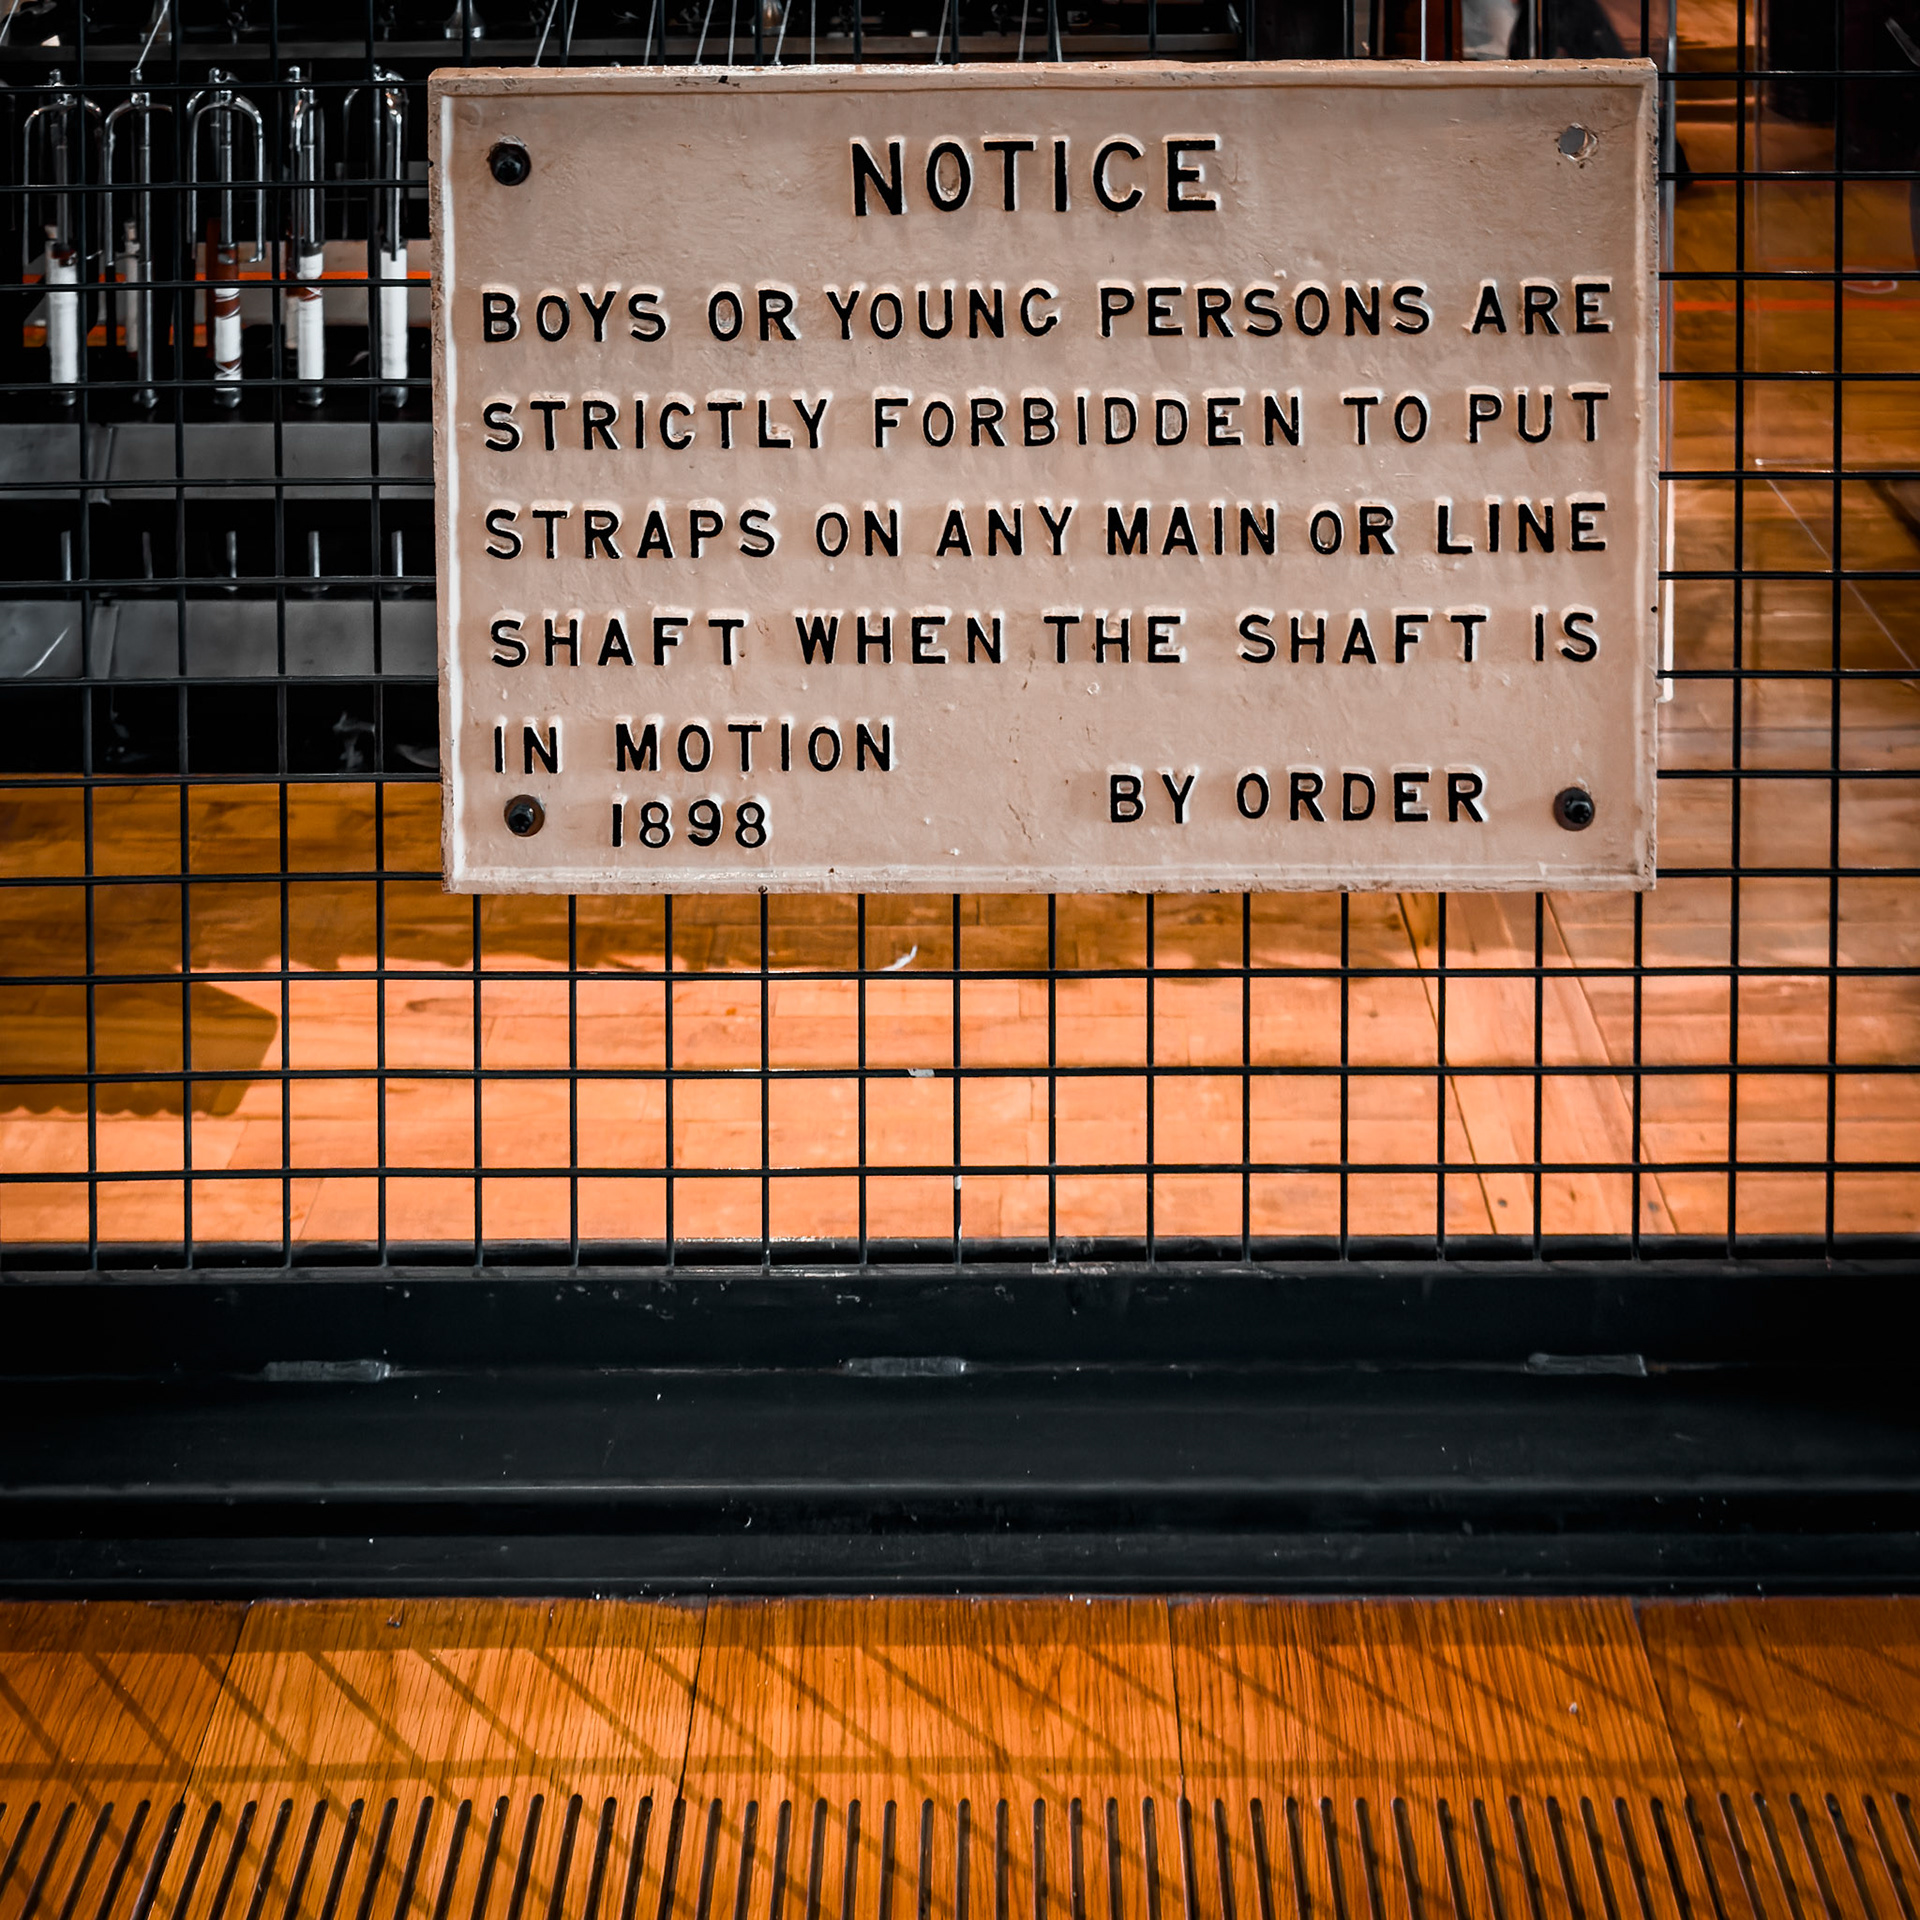 NOTICE
BOYS OR YOUNG PERSONS ARE
STRICTLY FORBIDDEN TO PUT
STRAPS ON ANY MAIN OR LINE
SHAFT WHEN THE SHAFT IS
IN MOTION
1898 BY ORDER